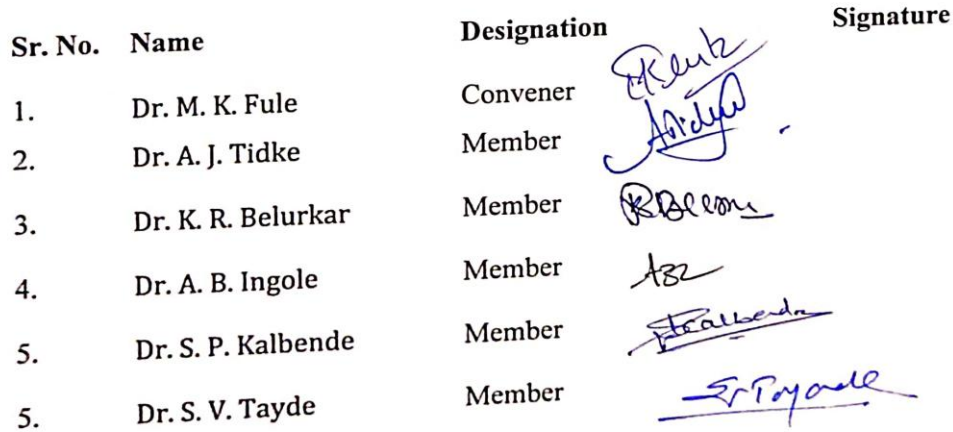 Sr. No. Name Designation Signature
1. Dr. M. K. Fule Convener
2. Dr. A. J. Tidke Member
3. Dr. K. R. Belurkar Member
4. Dr. A. B. Ingole Member
5. Dr. S. P. Kalbende Member
5. Dr. S. V. Tayde Member